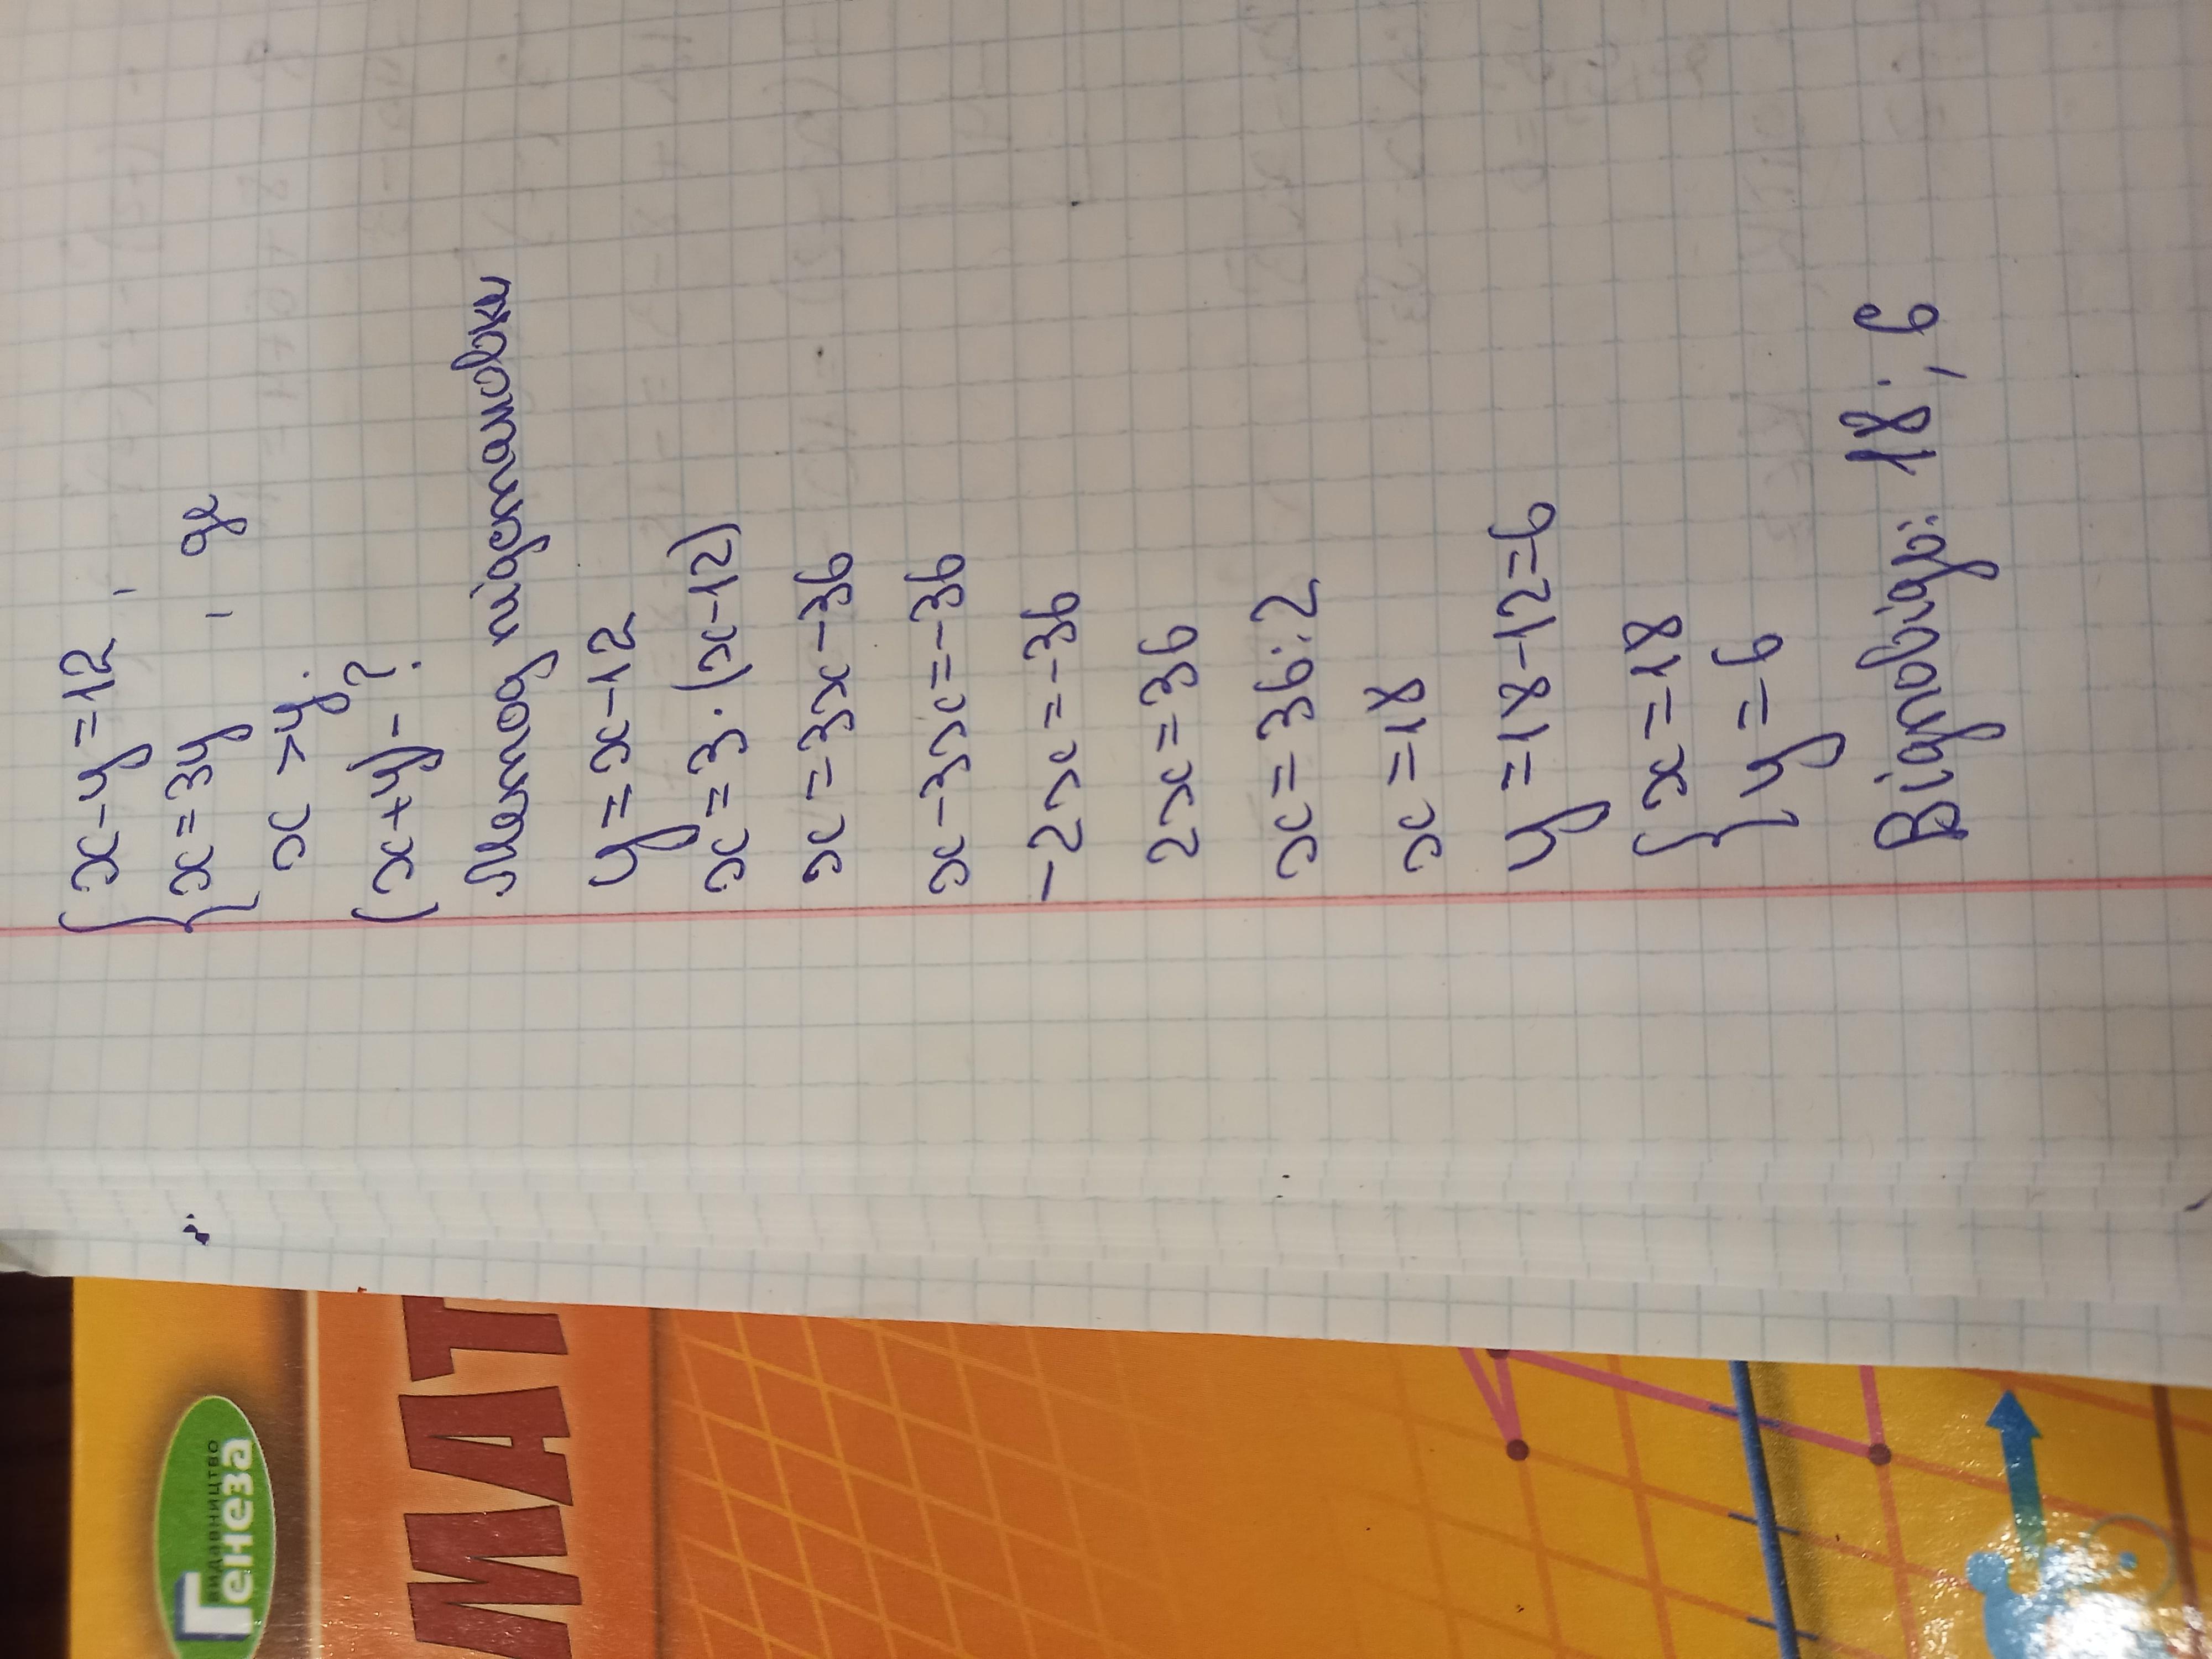 x-y=12,
x=3y, де
x>y.
(x+y)-?
Метод підстановки
y=x-12
x=3·(x-12)
x=3x-36
x-3x=-36
-2x=-36
2x=36
x=36:2
x=18
y=18-12=6
x=18
y=6
Відповідь: 18; 6
ВИДАВНИЦТВО
Генеза
МАТ